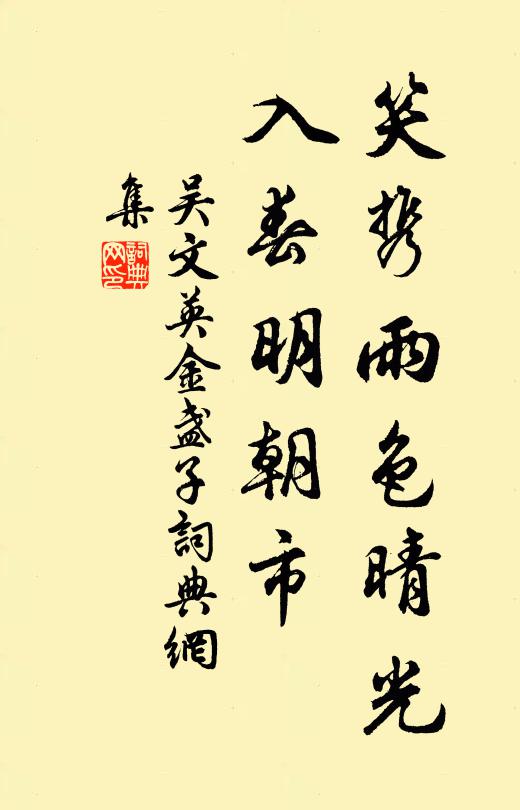 笑携雨色晴光
入春明朝市
吴文英金盏子詞典網
集
詞典网印